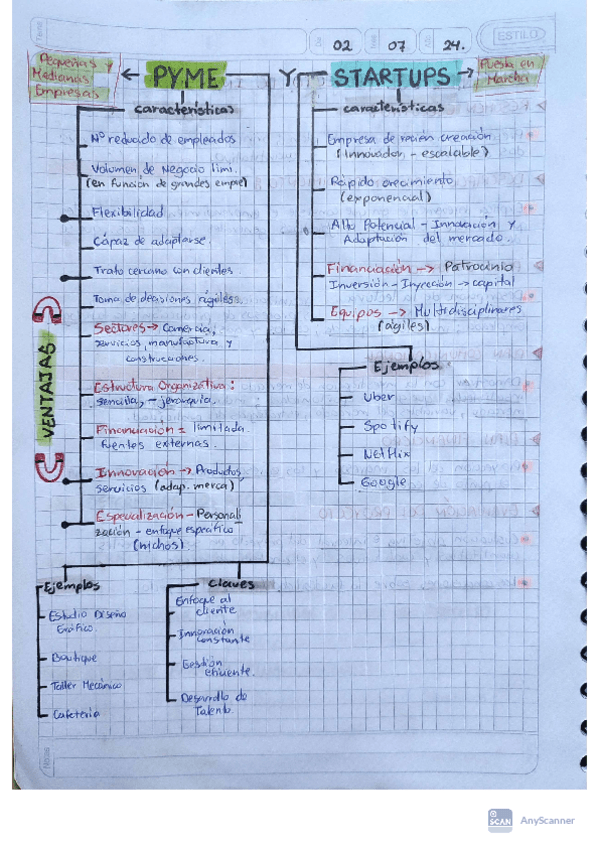 02 07 24.
ESTILO
Pequeñas y
Medianas
Empresas
PYME Y STARTUPS
Puesta en
Marcha
características
Nº reducido de empleados
Volumen de Negocio limi.
(en función de grandes empre)
Flexibilidad
Cápaz de adaptarse.
Trato cercano con clientes.
Toma de decisiones ágiles.
Sectores → Comercio,
servicios, manufactura y
construcciones.
Estructura Organizativa:
sencilla, - jerarquía.
Financiación = limitada.
fuentes externas.
Innovación → Productos,
servicios (adap. merca)
Especialización - Personali
zación - enfoque específico
(nichos)
VENTAJAS
Ejemplos
Estudio Diseño
Gráfico.
Boutique
Taller Mecánico
Cafetería
Claves
Enfoque al
cliente
Innovación
constante
Gestión
eficiente.
Desarrollo de
Talento.
características
Empresa de recién creación
(Innovador - escalable)
Rápido crecimiento
(exponencial)
Alto Potencial - Innovación y
Adaptación del mercado.
Financiación → Patrocinio
Inversión - Inyección → capital
Equipos → Multidisciplinares
(ágiles)
Ejemplos
Uber
Spotify
Netflix
Google
SCAN
AnyScanner